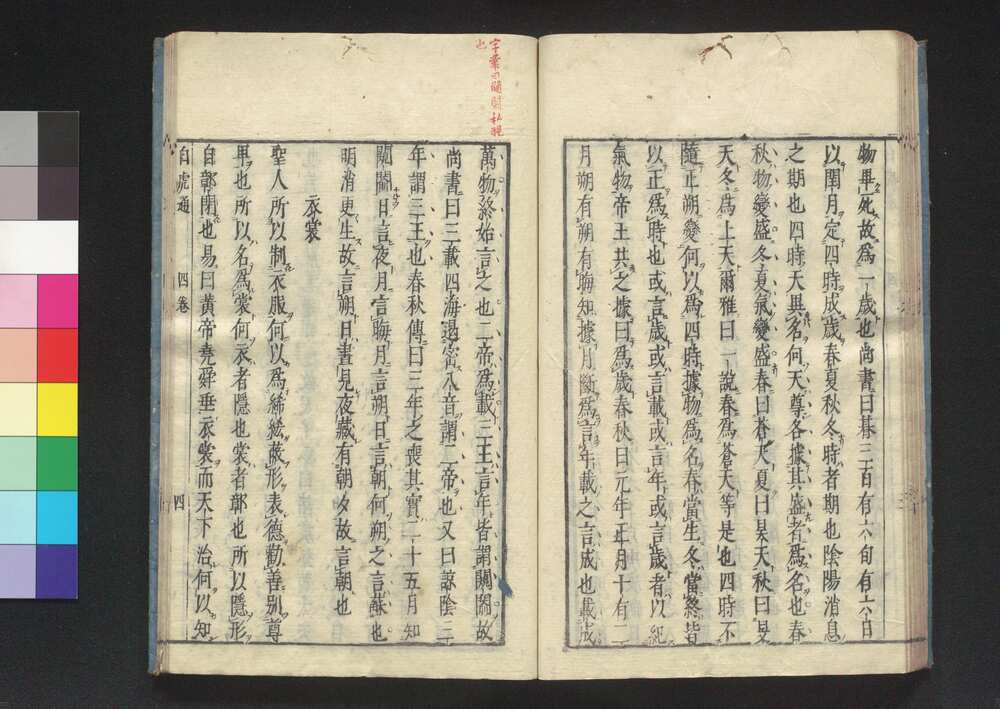 物畢死故爲一歳也尚書曰朞三百有六旬有六日
以閏月定四時成歳春夏秋冬時者期也陰陽消息
之期也四時天異名何天尊各據其盛者爲名也春
秋物變盛冬夏氣變盛春曰蒼天夏曰昊天秋曰旻
天冬爲上天爾雅曰一說春爲蒼天等是也四時不
隨正朔變何以爲四時據物爲名春當生冬當終皆
以正爲時也或言歳或言載或言年或言歳者以紀
氣物帝王共之據日爲歳春秋曰元年正月十有二
月朔有朔有晦知據月斷爲言年載之言成也載成
萬物終始言之也二帝爲載三王言年皆謂闚闚故
尚書曰三載四海遏密八音謂二帝也又曰諒陰三
年謂三王也春秋傳曰三年之喪其實二十五月知
闚闚日言夜月言晦月言朔日言朝何朔之言蘇也
明消更生故言朔日晝見夜藏有朝夕故言朝也
衣裳
聖人所以制衣服何以爲絺綌蔽形表德勸善別尊
卑也所以名爲裳何衣者隱也裳者鄣也所以隱形
自鄣閉也易曰黃帝堯舜垂衣裳而天下治何以知
白虎通 四卷 四